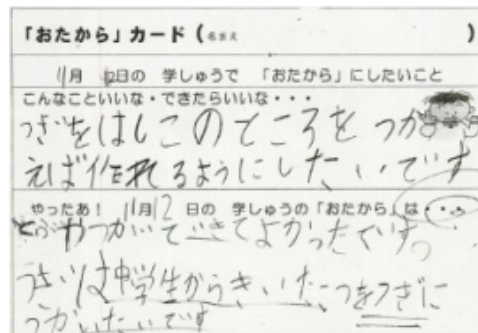 「おたから」カード（なまえ ）
11月 12日の 学しゅうで 「おたから」にしたいこと
こんなこといいな・できたらいいな・・・
つぎをはしこのところを つか
えば作れるようにしたいです
やったあ！ 11月12日の 学しゅうの「おたから」は・・・
つかいてできてよかったです。
つぎは中学生からきいたことをつぎに
つかいたいです